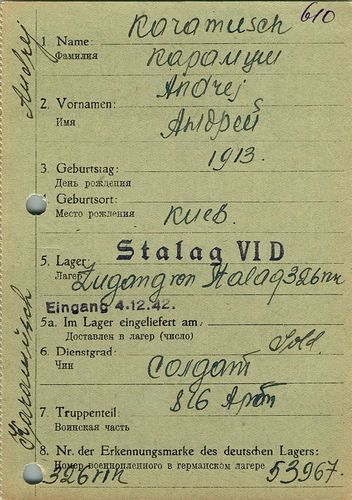 610
Karamusch
1 Name:
Фамилия
Карамуш
Andrej
2. Vornamen:
Имя
Андрей
3. Geburtstag:
День рождения
1913.
Geburtsort:
Место рождения
Киев.
Stalag VI D
5. Lager:
Лагерь
Zugang von Stalag 326
Eingang 4.12.42.
5a. Im Lager eingeliefert am:
Доставлен в лагерь (число)
6. Dienstgrad:
Чин
Sold.
Солдат
816 Арт
7. Truppenteil:
Воинская часть
8. Nr. der Erkennungsmarke des deutschen Lagers:
Номер военнопленного в германском лагере
326
53967.
Karamusch
Andrej